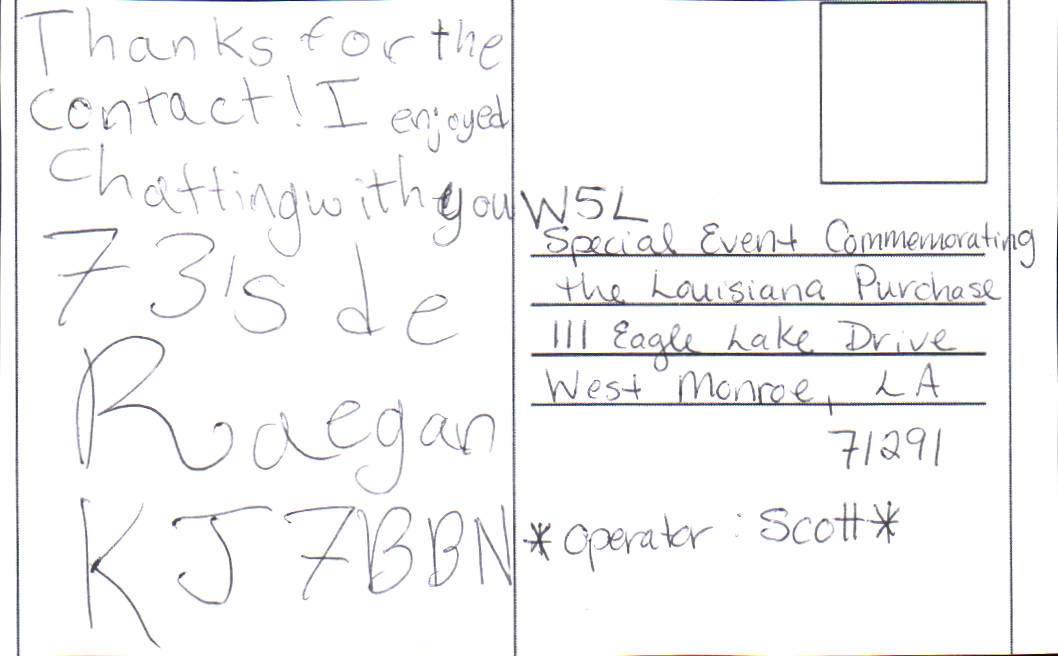 Thanks for the
contact! I enjoyed
Chatting with you
73's de
Raegan
KJ7BBN
W5L
Special Event Commemorating
the Louisiana Purchase
111 Eagle Lake Drive
West Monroe, LA
71291
*operator: Scott*